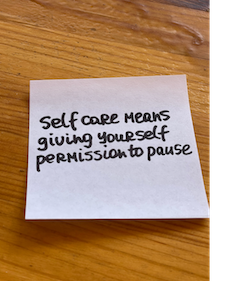 self care means
giving yourself
permission to pause